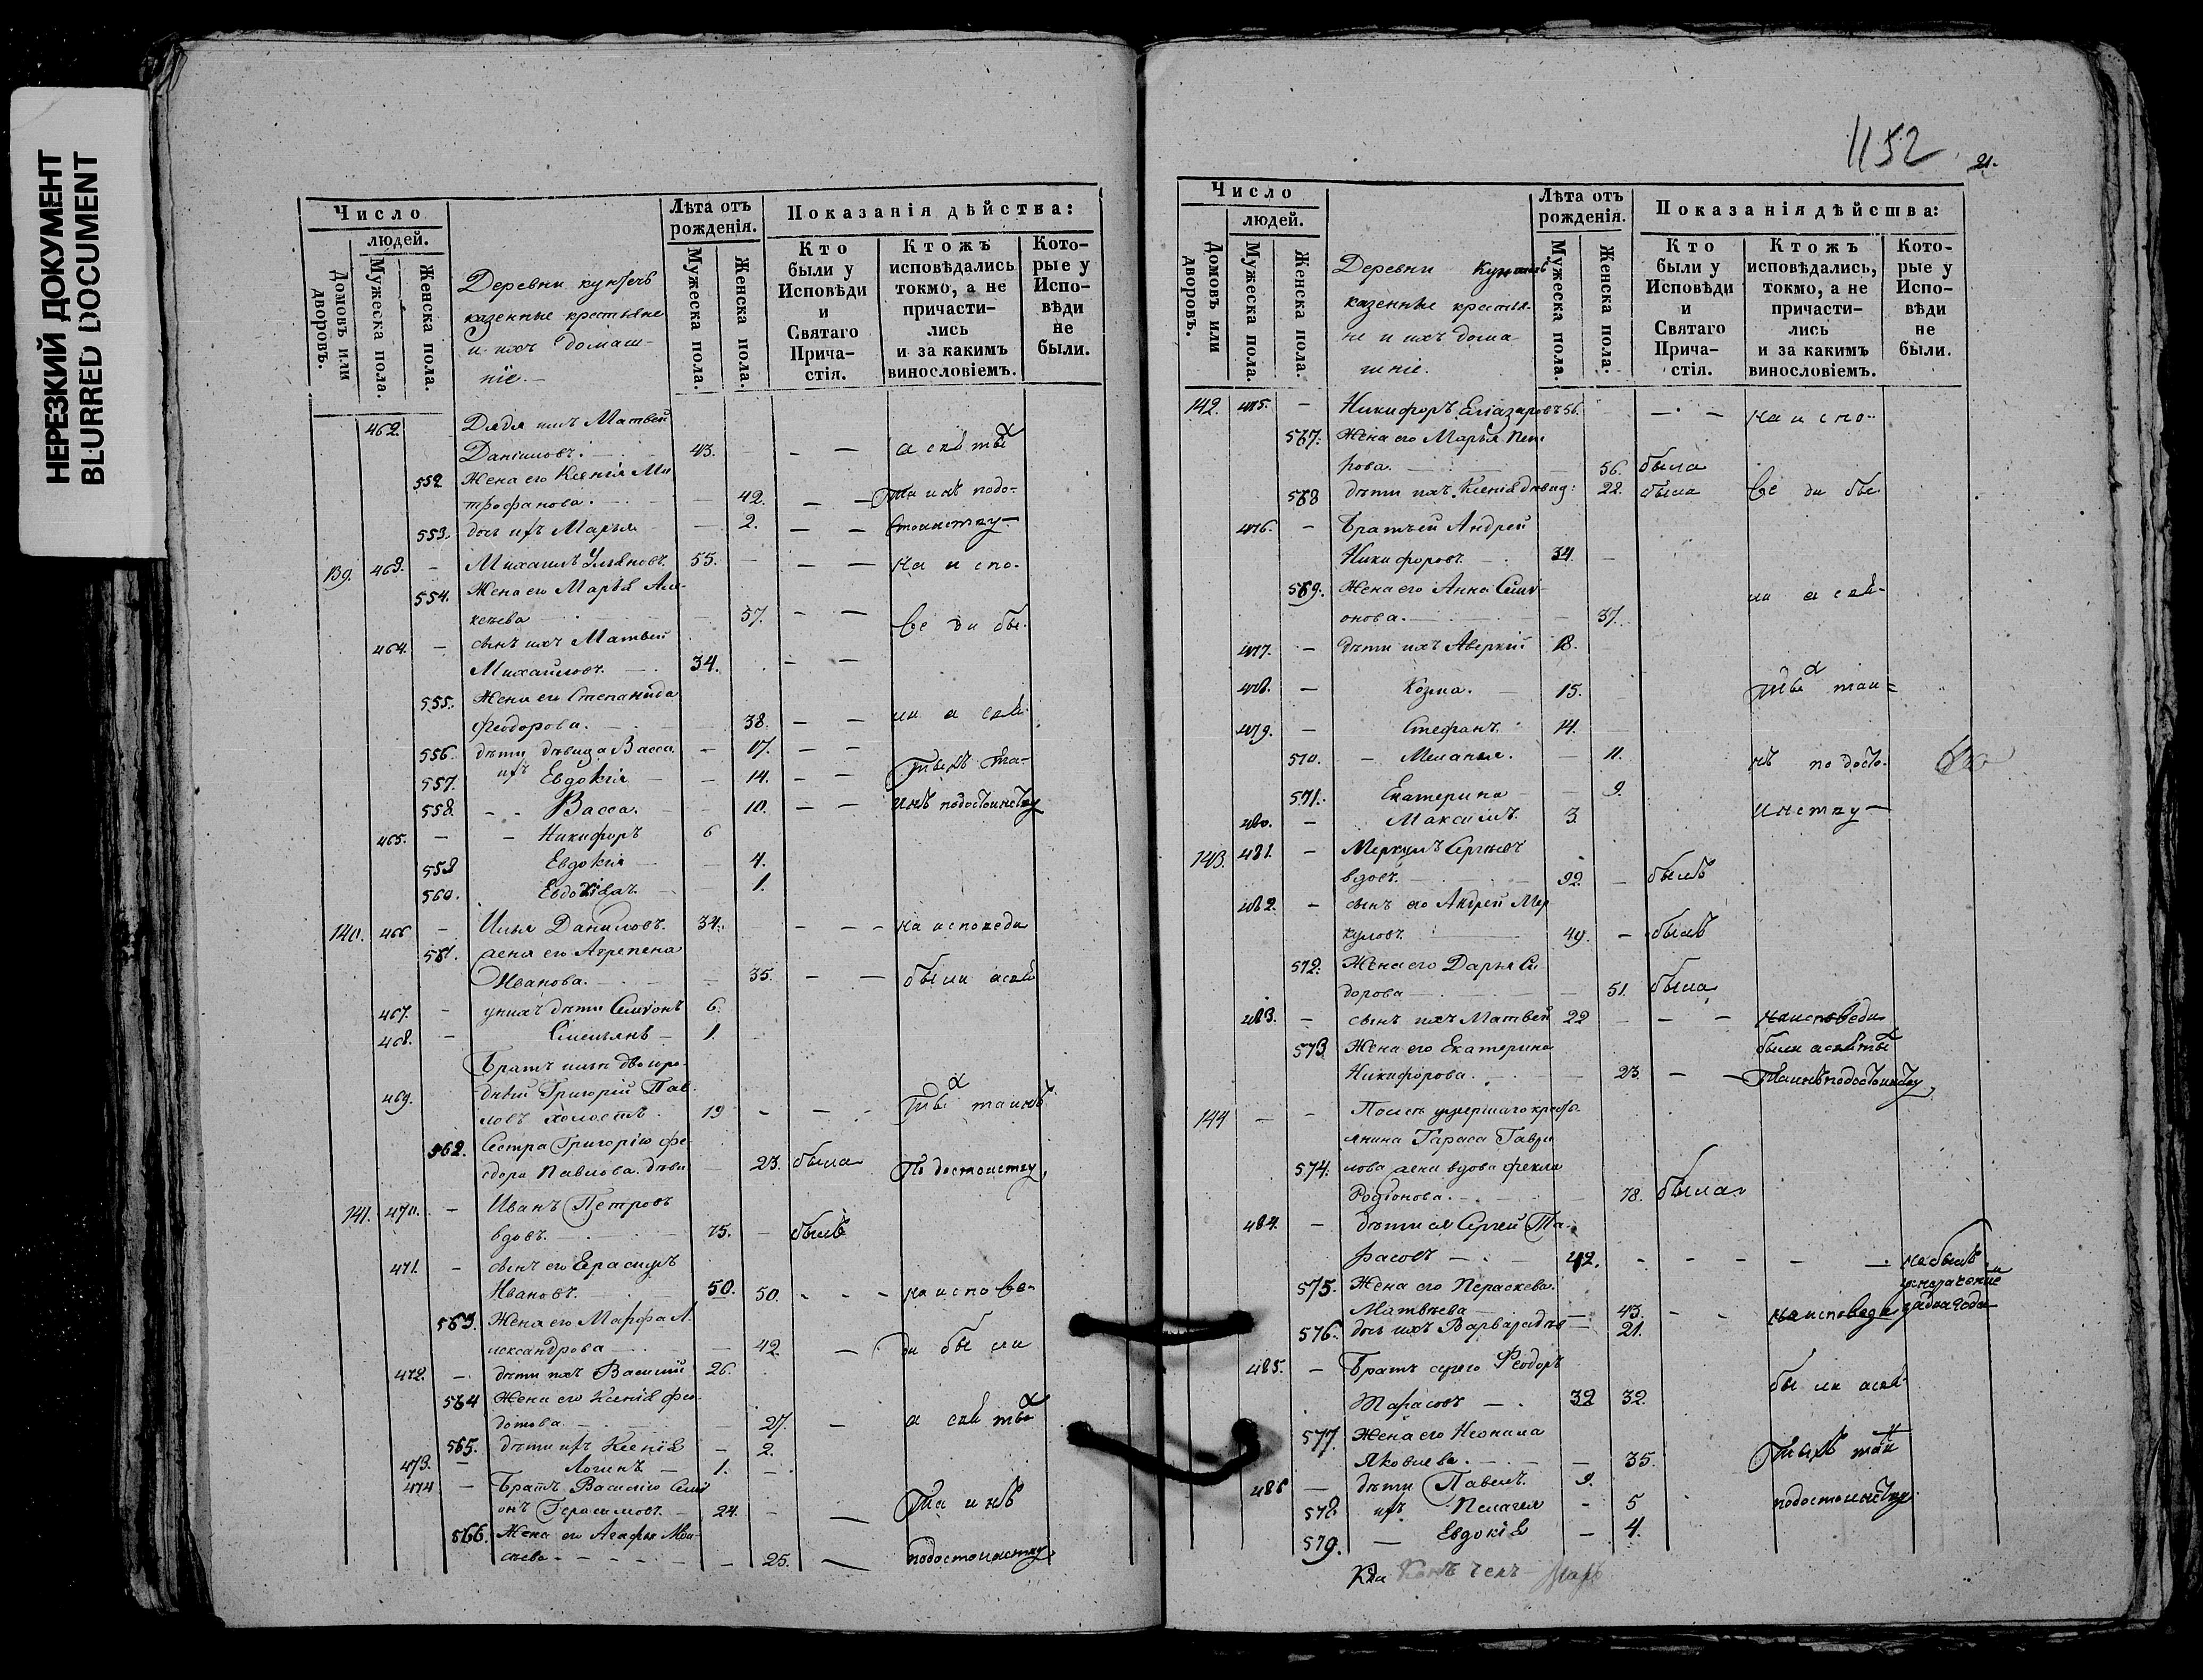 НЕРЕЗКИЙ ДОКУМЕНТ
BLURRED DOCUMENT
Число
людей.
Домовъ или дворовъ.
Мужеска пола.
Женска пола.
Деревни
казенные крестьяне
и ихъ домаш-
ніе.
Лѣта отъ рожденія.
Мужеска пола.
Женска пола.
Показанія дѣйства:
Кто были у Исповѣди и Святаго Прича-стія.
Ктожъ исповѣдались токмо, а не причасти-лись и за какимъ винословіемъ.
Кото-рые у Испо-вѣди не были.
462. Дядя ихъ Матвей
Даніиловъ. 43. — —
552 Жена его Ксенія Ми
трофанова. — 42. — —
553. дочь ихъ Марья — 2. — —
139. 463. — Михаилъ Ульяновъ 55. — — — на испо-
554. Жена его Марья Але-
ксѣева — 37. — — ве ди бы-
464. — сынъ ихъ Матвей
Михайловъ. — 34. — —
555. Жена его Степанида
Феодорова. — 38. — — ли а свя-
556. дѣти дѣвица Васса. — 17. — —
557. ихъ Евдокія — — 14. — —
558. — Васса. — — 10. — — инъ подостоинству
465. — — Никифоръ 6
559 Евдокія — — 4.
560. — — 1.
140. 466 — Илья Даниловъ. 34. — — — на исповеди
561. жена его Агрепена
Иванова. — 35. — — были а свя
467. — у нихъ дѣти Симіонъ 6.
468. — Емельянъ — 1.
Братъ имъ двоюро-
469. дный Григорій Пав-
ловъ холостъ 19 — — — таинъ
562. Сестра Григорію Фе-
одора Павлова дѣви — 23. была По достоинству
141. 470. — Иванъ Петровъ
вдовъ. — 75. — былъ
471. — сынъ его Ерасимъ
Ивановъ. — 50. 50. — — — на испове-
563. Жена его Марфа А-
лександрова — — 42. — ди бы ли
472. — дѣти ихъ Василій 26.
564 Жена его Ксенія Фе-
дотова. — — 27. — а свя
565. дѣти ихъ Ксенія — 2.
473. — Логинъ — 1. —
474 — Братъ Василію Семі
онъ Герасимовъ. — 24. — — Та инъ
566. Жена его Агафья Мои-
сѣева — — — 25. — подостоинству
1152
21.
Число
людей.
Домовъ или дворовъ.
Мужеска пола.
Женска пола.
Деревни
казенные крестья-
не и ихъ дома-
шніе.
Лѣта отъ рожденія.
Мужеска пола.
Женска пола.
Показанія дѣйства:
Кто были у Исповѣди и Святаго Прича-стія.
Ктожъ исповѣдались, токмо, а не причасти-лись и за какимъ винословіемъ.
Кото-рые у Испо-вѣди не были.
142. 475. — Никифоръ Еліазаровъ 56. — — — на испо-
567. Жена его Марья Пет
рова. — 56. была
568 дѣти ихъ Ксенія дѣвиц: 22. была ве ди бы
476. — Братъ ей Андрей
Никифоровъ — 34. —
569. Жена его Анна Симі-
онова. — 37. ли а свя-
477. — дѣти ихъ Аверкій 18.
478. — Козма. — 15. таи=
479. — Стефанъ. 14. —
570. — Меланья. — 11. нъ по досто-
571. Екатерина — — 9.
480. — Максимъ. 3. инству —
143. 481. — Меркулъ Сергѣевъ
вдовъ. — 92. — былъ
482. — сынъ его Андрей Мер
куловъ. — 49. — былъ
572. Жена его Дарья Си
дорова — — 51. была
483. — сынъ ихъ Матвей 22 — — — на исповеди
573 Жена его Екатерина
Никифорова. — — 23. — —
144 — — После умершаго кресть-
янина Тараса Гаври
574. лова жена вдова Фекла
Родіонова. — — 78. была
484. — дѣти ея Сергей Та-
расовъ — 42. — — — — — не былъ
575. Жена его Пераскева
Матвѣева — 43. — — на исповеди
576. дочь ихъ Варвара дѣв — 21.
485. — Братъ Сергею Феодоръ
Тарасовъ — 32 32. бы ли а свя-
577. Жена его Неонила
Яковлева. — — 35.
486 — дѣти Павелъ. 9.
578. ихъ Пелагея — 5 подостоинству
579. — Евдокія — 4.